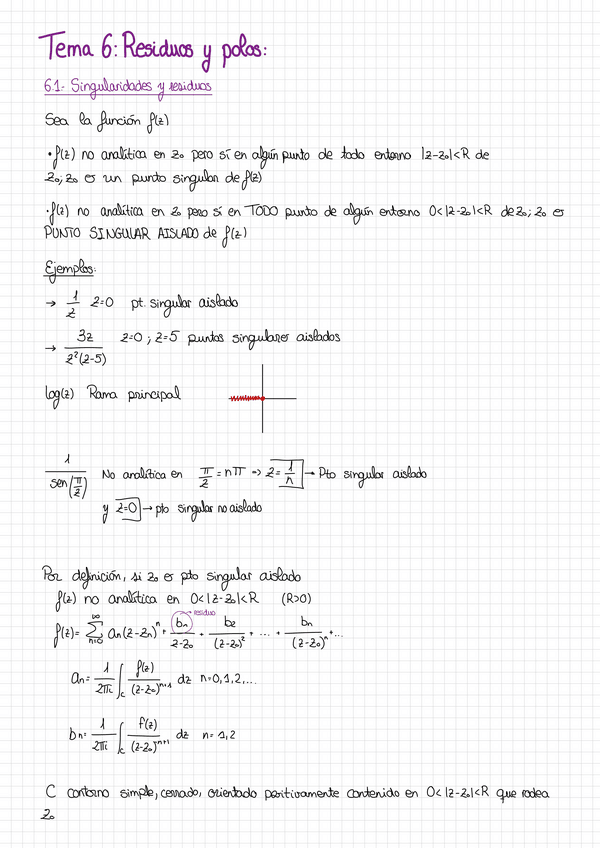 Tema 6: Residuos y polos:
6.1- Singularidades y residuos
Sea la función f(z)
• f(z) no analítica en z₀ pero sí en algún punto de todo entorno |z-z₀|<R de
z₀; z₀ es un punto singular de f(z)
• f(z) no analítica en z₀ pero sí en TODO punto de algún entorno 0<|z-z₀|<R de z₀; z₀ es
PUNTO SINGULAR AISLADO de f(z)
Ejemplos:
→ 1/z z=0 pt. singular aislado
→ 3z/(z²(z-5)) z=0 ; z=5 puntos singulares aislados
log(z) Rama principal
1/sen(π/z) No analítica en π/z = nπ => z = 1/n → Pto singular aislado
y z=0 → pto singular no aislado
Por definición, si z₀ es pto singular aislado
f(z) no analítica en 0<|z-z₀|<R (R>0)
residuo
f(z) = ∑_{n=0}^{∞} aₙ(z-zₙ)ⁿ + bₙ/(z-z₀) + b₂/(z-z₀)² + ... + bₙ/(z-z₀)ⁿ + ...
aₙ = 1/(2πi) ∫_c f(z)/(z-z₀)ⁿ⁺¹ dz n=0,1,2,...
bₙ = 1/(2πi) ∫_c f(z)/(z-z₀)ⁿ⁺¹ dz n= 1,2
C contorno simple, cerrado, orientado positivamente contenido en 0<|z-z₀|<R que rodea
z₀